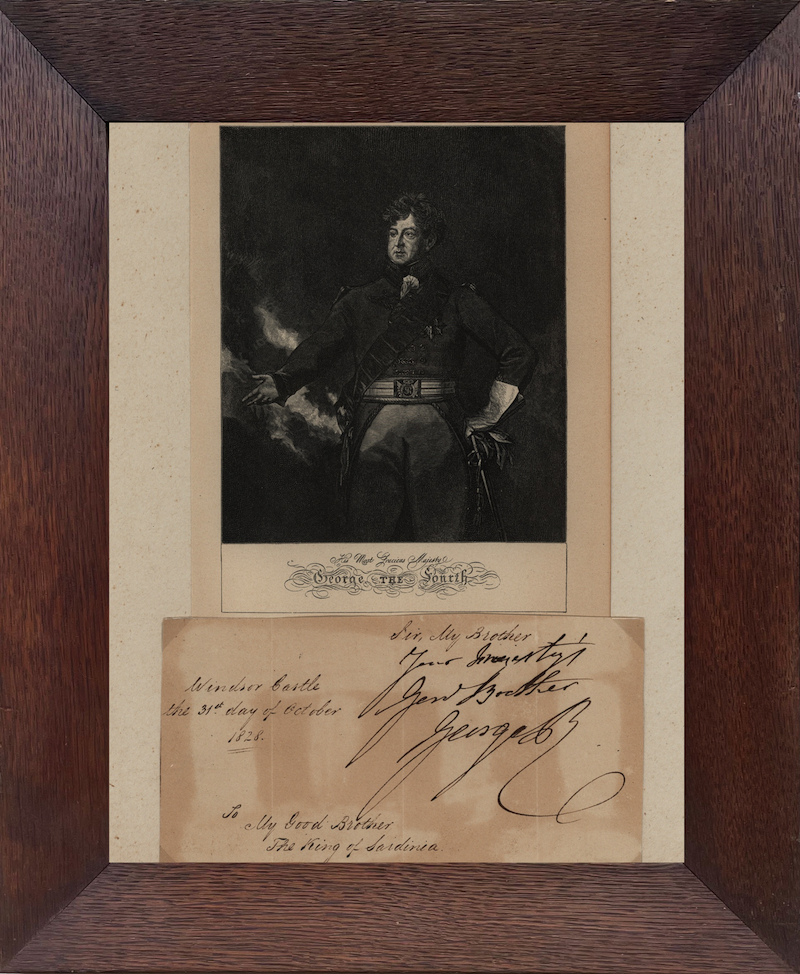 His Most Gracious Majesty
George THE Fourth
Sir, My Brother
Your Majesty's
Good Brother
George R
Windsor Castle
the 31st day of October
1828.
To
My Good Brother
The King of Sardinia.